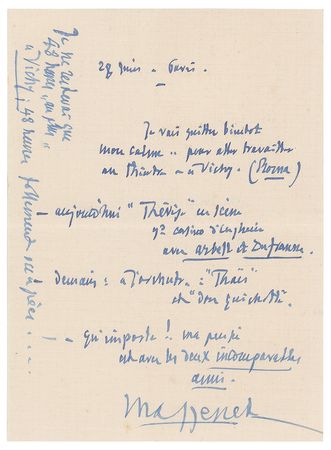 27 juin – Paris.
Je vais quitter bientôt
mon calme .. pour aller travailler
au théâtre – à Vichy. (Roma)
– aujourd'hui "Thérèse" en scène
gd casino d'Enghien
avec Arbell et Dufranne
demain : à l'orchestre : "Thaïs"
et "don quichotte".
– qu'importe ! ma pensée
est avec les deux incomparables
amis.
Massenet
Je ne resterai que
48 heures
à Vichy ; 48 heures follement occupées ....!